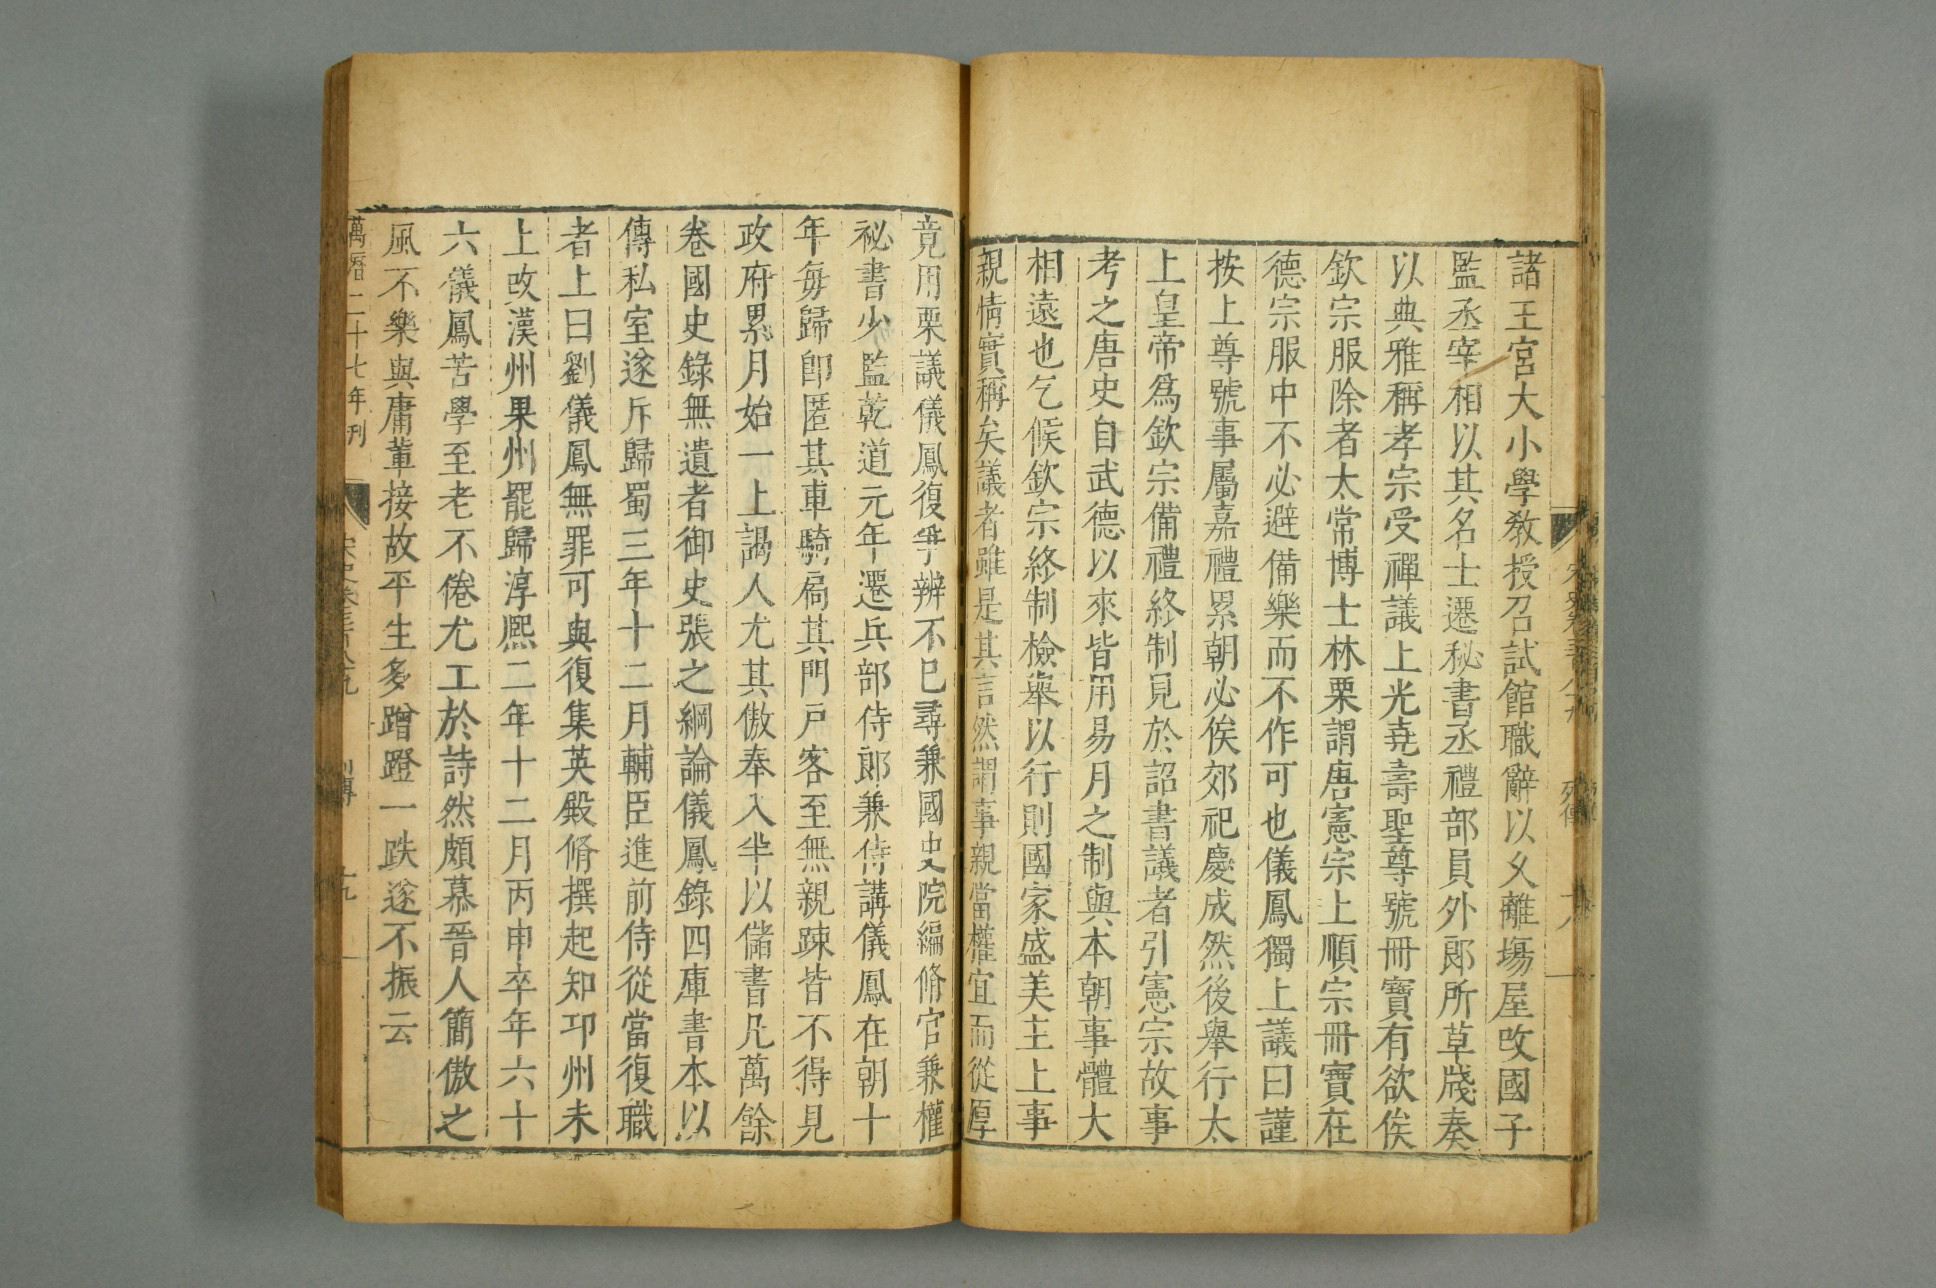 諸王宮大小學教授召試館職辭以乂離場屋改國子
監丞宰相以其名士遷秘書丞禮部員外郎所草牋奏
以典雅稱孝宗受禪議上光堯壽聖尊號冊寶有欲俟
欽宗服除者太常博士林栗謂唐憲宗上順宗冊寶在
德宗服中不必避備樂而不作可也儀鳳獨上議曰謹
按上尊號事屬嘉禮累朝必俟郊祀慶成然後舉行太
上皇帝爲欽宗備禮終制見於詔書議者引憲宗故事
考之唐史自武德以來皆用易月之制與本朝事體大
相遠也乞候欽宗終制檢舉以行則國家盛美主上事
親情實稱矣議者雖是其言然謂事親當權宜而從厚
竟用栗議儀鳳復爭辨不已尋兼國史院編脩官兼權
祕書少監乾道元年遷兵部侍郎兼侍講儀鳳在朝十
年毎歸卽匿其車騎扃其門戸客至無親踈皆不得見
政府累月始一上謁人尤其傲奉入半以儲書凡萬餘
卷國史錄無遺者御史張之綱論儀鳳錄四庫書本以
傳私室遂斥歸蜀三年十二月輔臣進前侍從當復職
者上曰劉儀鳳無罪可與復集英殿脩撰起知邛州未
上改漢州果州罷歸淳熙二年十二月丙申卒年六十
六儀鳳苦學至老不倦尤工於詩然頗慕晉人簡傲之
風不樂與庸輩接故平生多蹭蹬一跌遂不振云
萬曆二十七年刊
宋史卷三百八九
列傳
十九